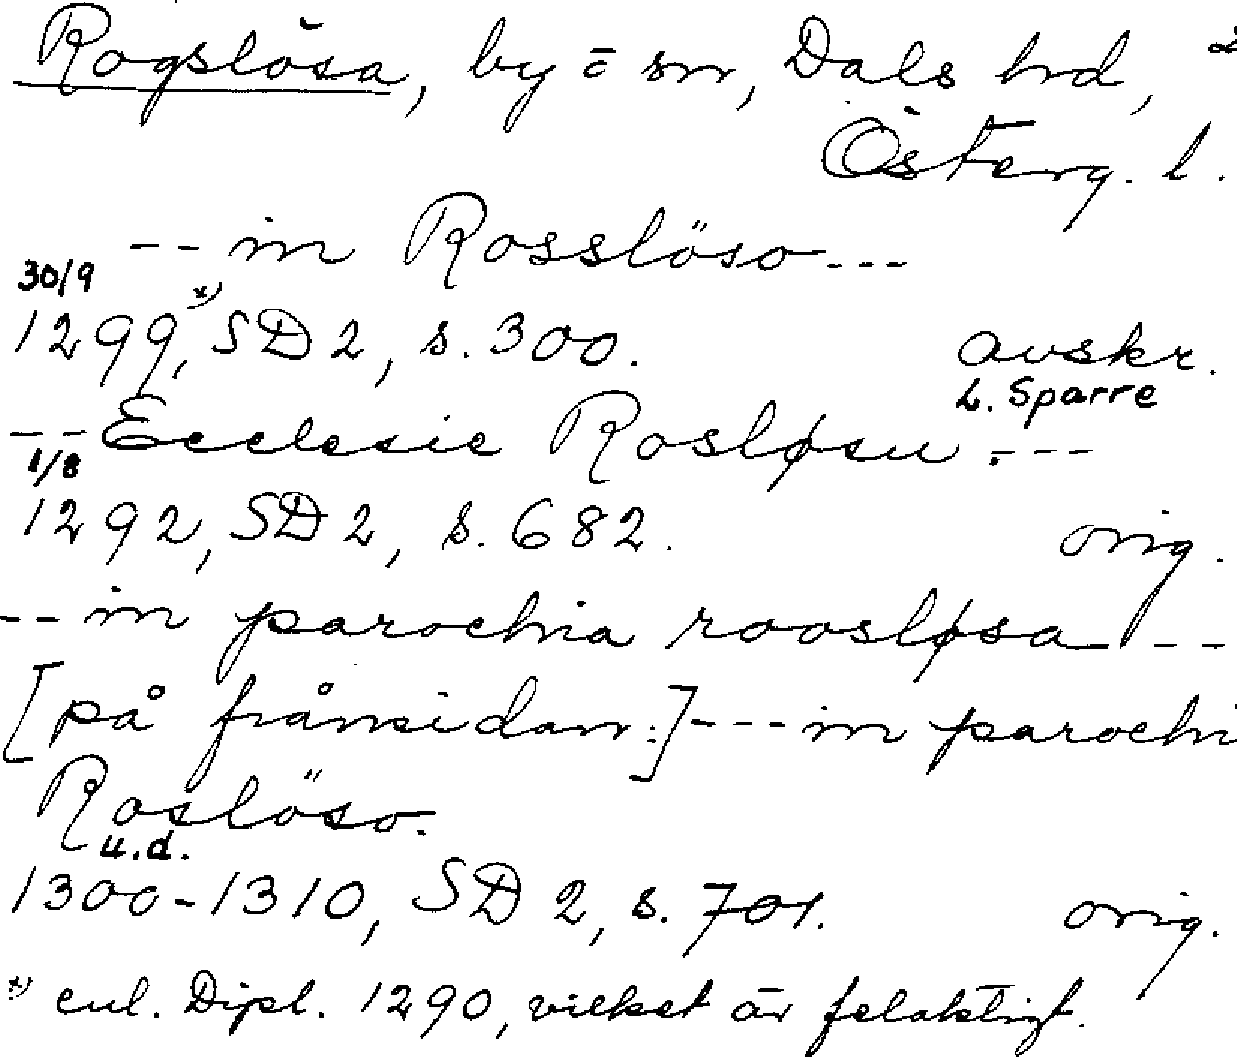 Rogslösa, by = sn, Dals hd, 2
Österg. l.
-- in Rosslöso ---
30/9
1299,*) SD 2, s. 300. avskr.
L. Sparre
-- Ecclesie Rosløsu. ---
1/8
1292, SD 2, s. 682. orig.
-- in parochia roosløsa ---
[på frånsidan:] --- in parochi
Roslöso.
u.d.
1300-1310, SD 2, s. 701. orig.
*) enl. Dipl. 1290, vilket är felaktigt.